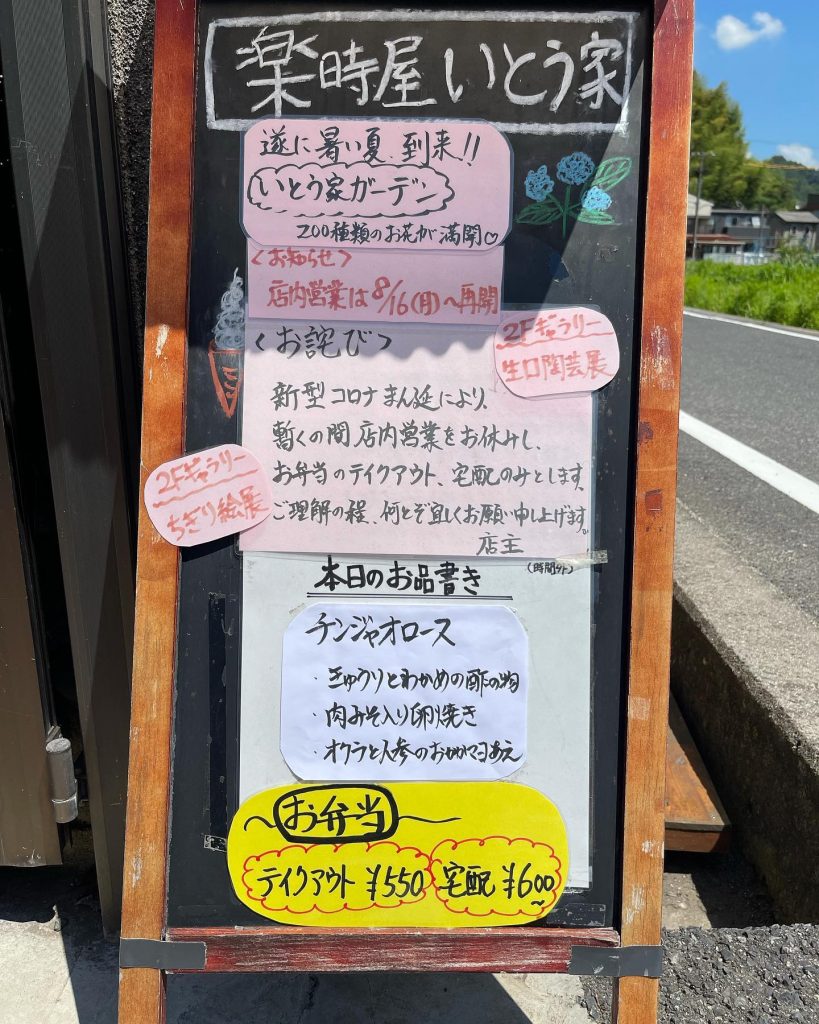 楽時屋いとう家
遂に暑い夏、到来!!
いとう家ガーデン
200種類のお花が満開♡
<お知らせ>
店内営業は8/16(月)〜再開
<お詫び>
2Fギャラリー
生口陶芸展
新型コロナまん延により、
暫くの間店内営業をお休みし、
お弁当のテイクアウト、宅配のみとします。
ご理解の程、何とぞ宜しくお願い申し上げます。
店主
2Fギャラリー
ちぎり絵展
本日のお品書き
チンジャオロース
・きゅうりとわかめの酢の物
・肉みそ入り卵焼き
・オクラと人参のおかかマヨあえ
〜お弁当〜
テイクアウト ¥550
宅配 ¥600〜